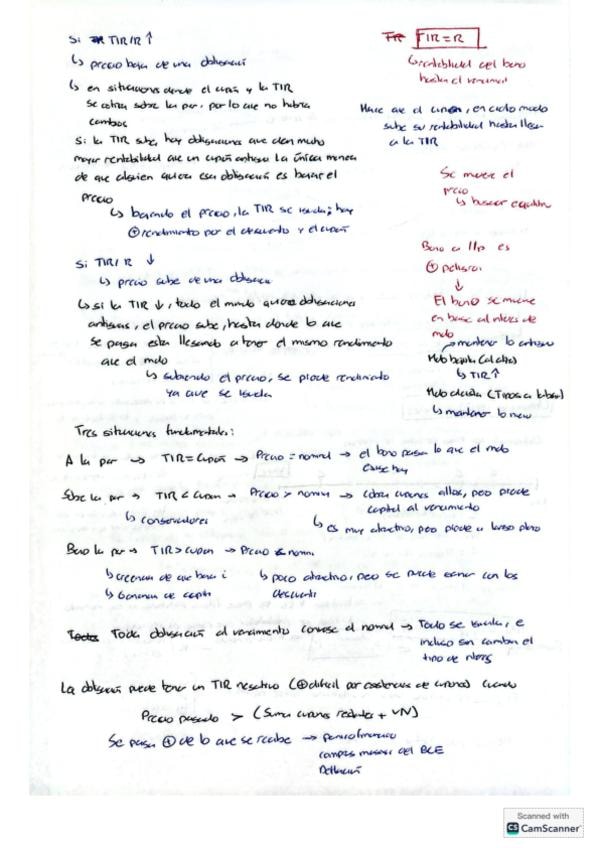 Si TIR/R ↑
↳ precio baja de una obligación
↳ en situaciones donde el cupón y la TIR
se cotiza sobre la par, por lo que no habría
cambios
Si la TIR sube, hay obligaciones que dan mucho
mayor rentabilidad que un cupón antiguo. La única manera
de que alguien quiera esa obligación es bajar el
precio
↳ bajando el precio, la TIR se iguala; hay
⊕ rendimiento por el descuento y el cupón
Si TIR/R ↓
↳ precio sube de una obligación
↳ si la TIR ↓, todo el mundo quiere obligaciones
antiguas, el precio sube, hasta donde lo que
se paga esta llegando a tener el mismo rendimiento
que el mdo
↳ subiendo el precio, se pierde rendimiento
ya que se iguala
TIR = R
↳ rentabilidad del bono
hasta el vencimiento
Hace que el cupón, en cada modo
sube su rentabilidad hasta llegar
a la TIR
Se mueve el
precio
↳ buscar equilibrio
Bono a l/p es
⊕ peligroso
↓
El bono se mueve
en base al interés de
mdo
→ mantener lo antiguo
Mdo bajista (al alta)
↳ TIR ↑
Mdo alcista (Tipos a la baja)
↳ mantener lo new
Tres situaciones fundamentales:
A la par → TIR = cupón → Precio = nominal → el bono paga lo que el mdo
exige hoy
Sobre la par → TIR < cupón → Precio > nominal → cobra cupones altos, pero pierde
capital al vencimiento
↳ conservadores
↳ es muy atractivo, pero pierde a largo plazo
Bajo la par → TIR > cupón → Precio < nominal
↳ creencia de que baja i
↳ poco atractivo, pero se puede ganar con los
descuento
↳ Ganancia de capital
Toda obligación al vencimiento converge al nominal → Todo se iguala, e
incluso sin cambiar el
tipo de interés
La obligación puede tener un TIR negativo (⊕ difícil por existencia de cupones) cuando
Precio pagado > (Suma cupones + VN)
Se paga ⊕ de lo que se recibe →
compras del BCE
Deflación
Scanned with
CS CamScanner